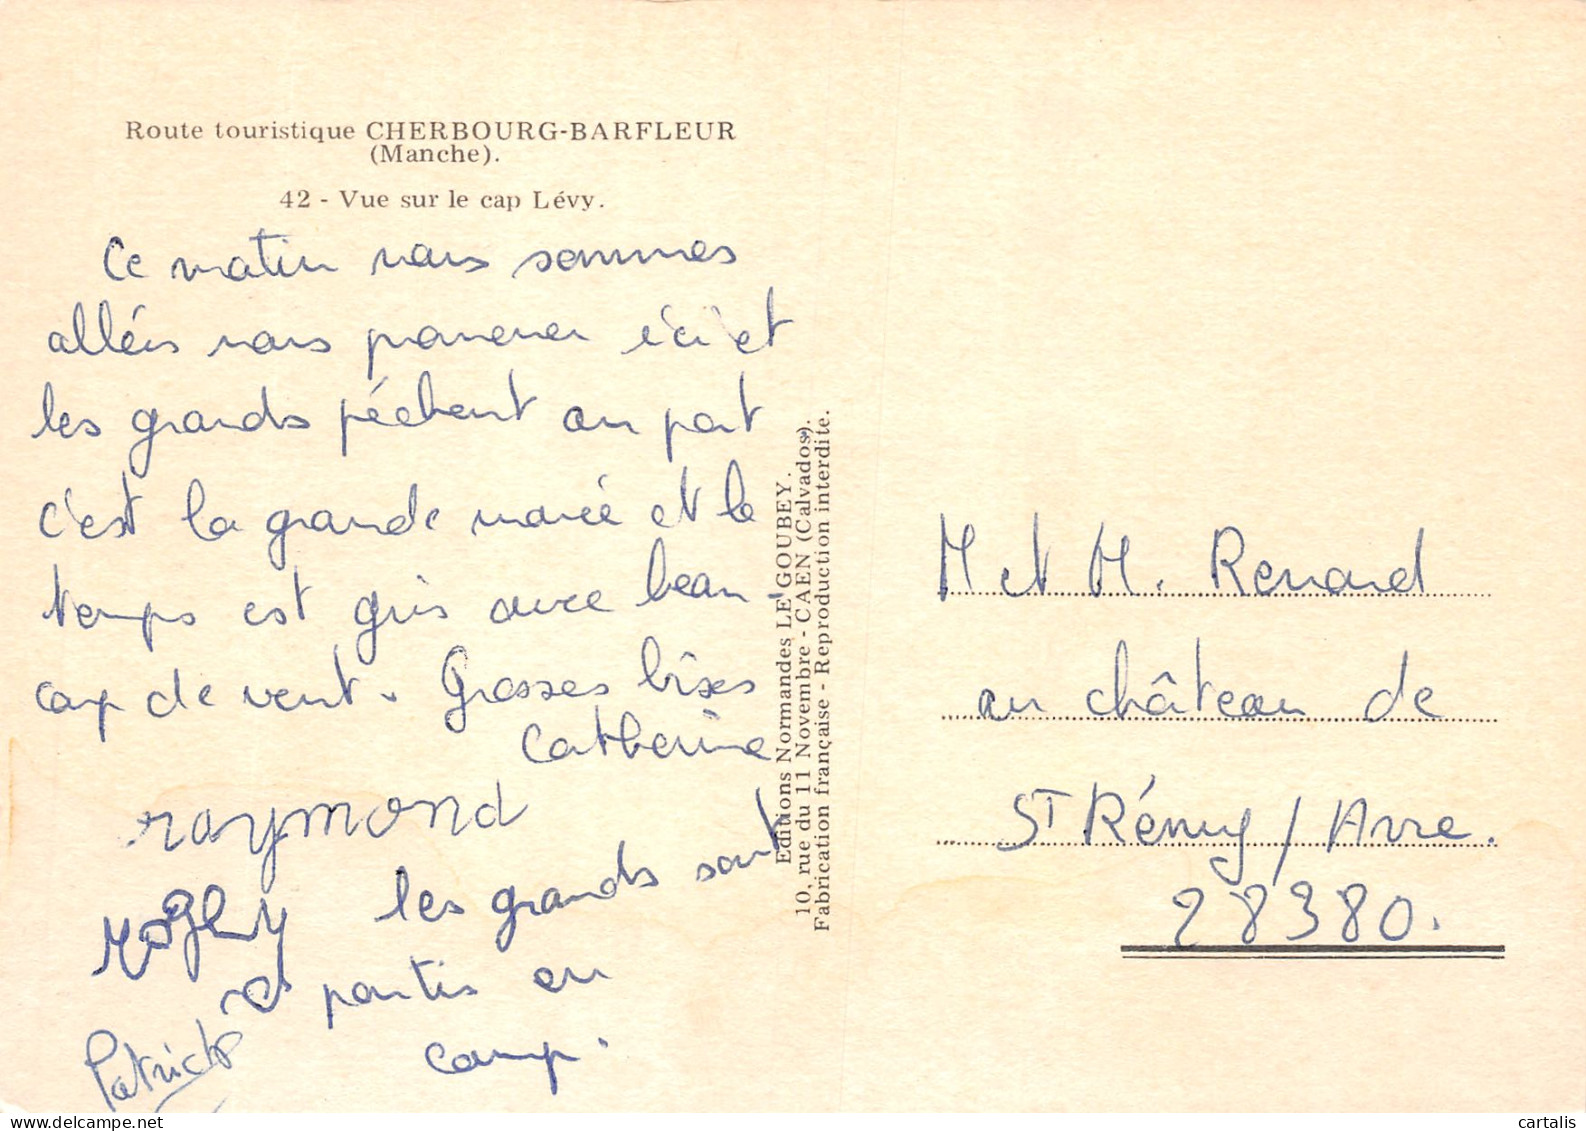 Route touristique CHERBOURG-BARFLEUR
(Manche).
42 - Vue sur le cap Lévy.
Ce matin nous sommes
allées nous promener ici et
les grands pêchent au port
c'est la grande marée et le
temps est gris avec beau-
coup de vent. Grosses bises
Catherine
raymond
les grands sont
partis en
camp.
Patrick
Editions Normandes LE GOUBEY.
10, rue du 11 Novembre - CAEN (Calvados).
Fabrication française - Reproduction interdite.
M et M. Renard
au château de
St Rémy / Avre.
28380.
cartalis